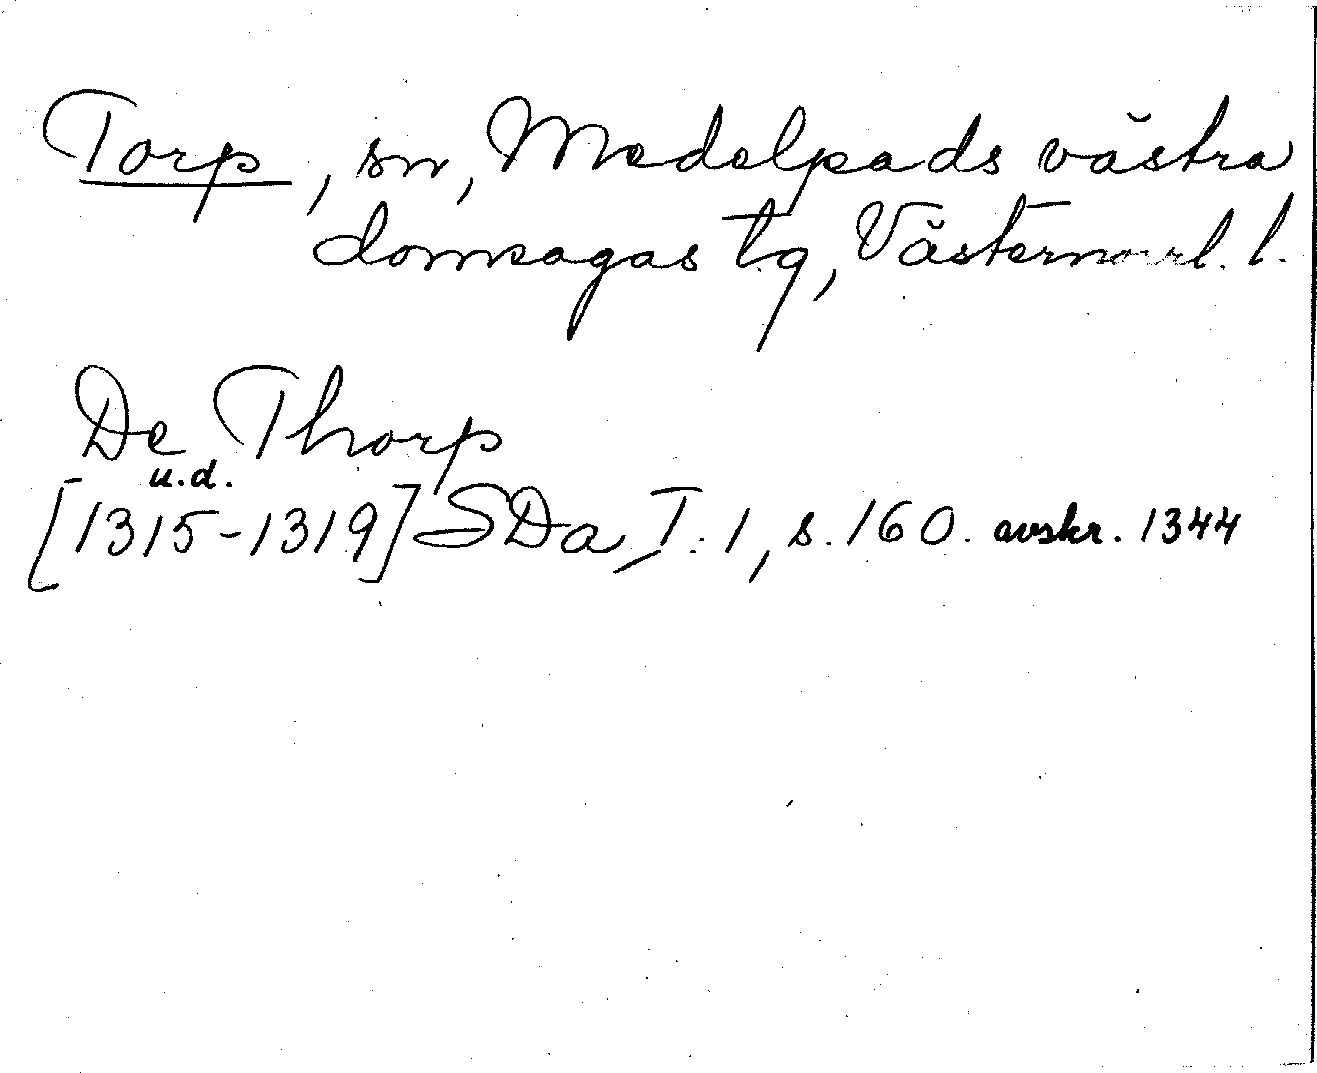 Torp, sn, Medelpads västra
domsagas tg, Västernorrl. l.
De Thorp
u.d.
[1315-1319] SDa I:1, s. 160. avskr. 1344